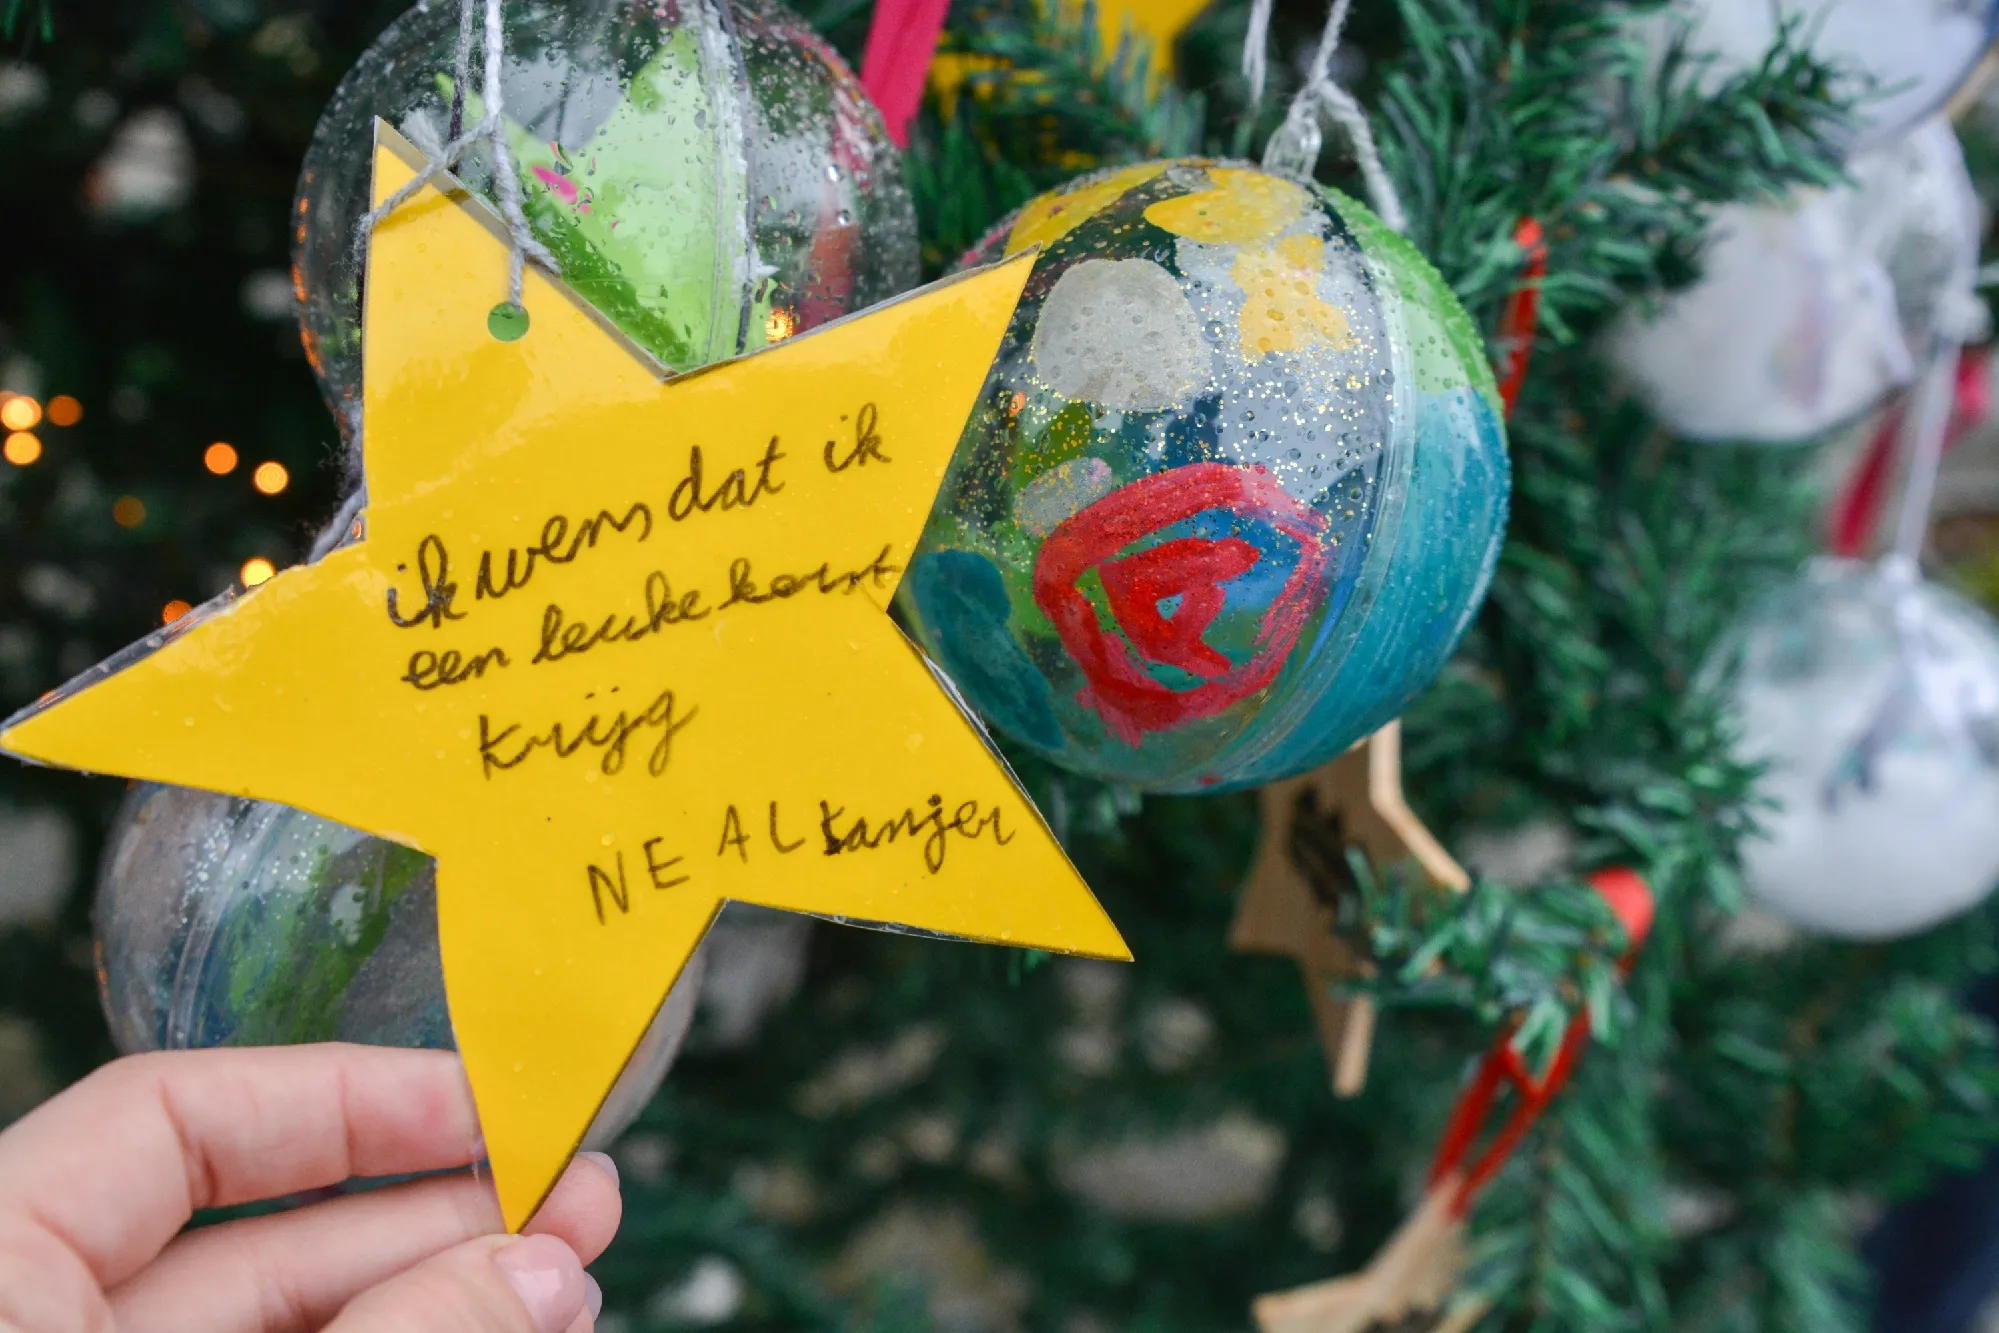 ik wens dat ik
een leuke kerst
krijg
NEAL kanjer